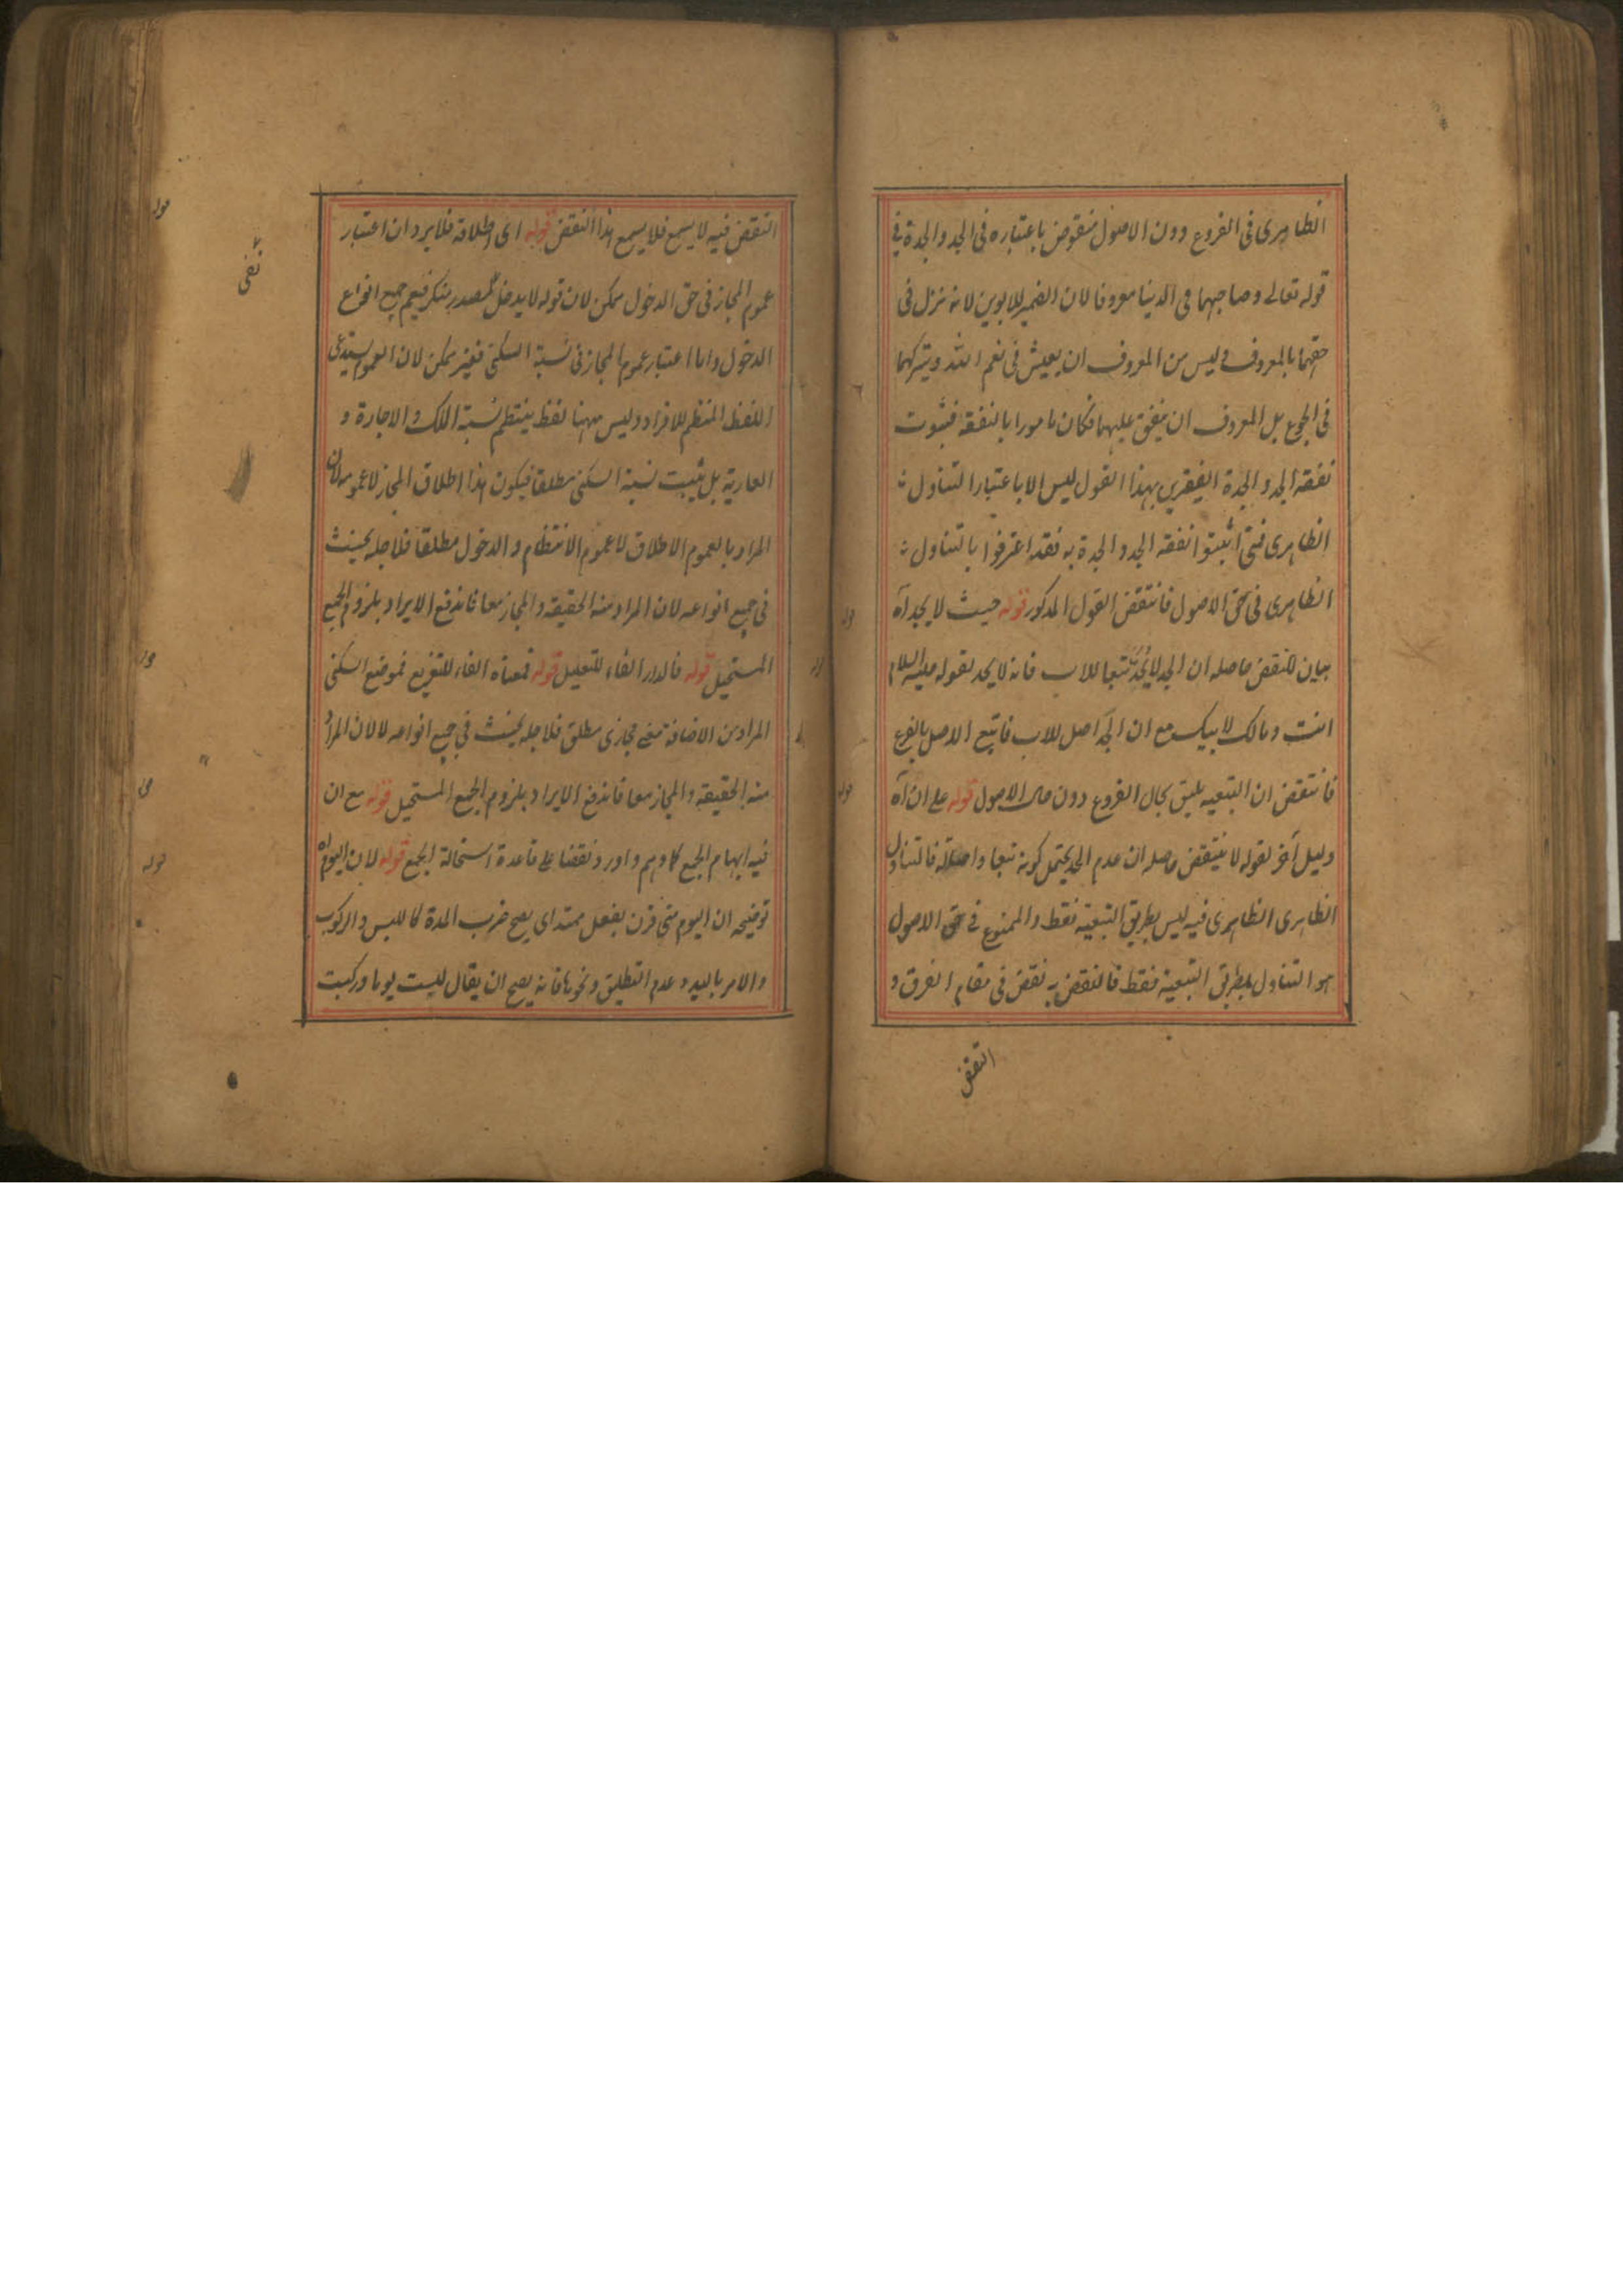 الظاهرى فى الفروع دون الاصول منقوض باعتباره فى الجد والجدة فى
قوله تعالے وصاحبهما فى الدنيا معروفا لان الضمير للابوين لانه نزل فى
حقهما بالمعروف وليس من المعروف ان يعيش فى نعم الله ويتركهما
فى الجوع بل المعروف ان ينفق عليهما فكان مامورا بالنفقة فثبوت
نفقة الجد والجدة الفقيرين بهذا القول ليس الا باعتبار التناول
الظاهرى فمتى اثبتوا نفقة الجد والجدة به فقد اعترفوا بالتناول
الظاهرى فى حق الاصول فانتقض القول المذكور قوله حيث لا يحد آه
بيان للنقض حاصله ان الجد لا يحد تبعا للاب فانه لا يحد لقوله عليه السلام
انت ومالك لابيك مع ان الجد اصل للاب فاتبع الاصل بالفرع
فانتقض ان التبعية يليق بحال الفروع دون حال الاصول قوله على ان آه
دليل آخر لقوله لا ينتقض حاصله ان عدم الحد يحتمل كونه تبعا واصالة فالتناول
الظاهرى الظاهرى فيه ليس بطريق التبعية فقط والممنوع فى حق الاصول
هو التناول بطريق التبعية فقط فالنقض به نقض فى مقام الفرق و
النقض
النقض فيه لا يسمع فلا يسمع هذا النقض قوله اى اطلاقه فلا يرد ان اعتبار
عموم المجاز فى حق الدخول ممكن لان قوله لا يدخل مصدر منكر فيعم جميع انواع
نفى
الدخول واما اعتبار عموم المجاز فى نسبة السكنى فغير ممكن لان العموم يستدعى
اللفظ المنتظم للافراد وليس ههنا لفظ ينتظم نسبة الملك والاجارة و
العارية بل يثبت نسبة السكنى مطلقا فيكون هذا اطلاق المجاز لا عمومه لان
المراد بالعموم الاطلاق لا عموم الانتظام والدخول مطلقا فلاجله يحنث
فى جميع انواعه لان المراد منه الحقيقة والمجاز معا فاندفع الايراد بلزوم الجمع
المستحيل قوله فالدار الفاء للتعليل قوله فمعناه الفاء للتفريع فموضع السكنى
المراد من الاضافة معنى مجازى مطلق فلاجله يحنث فى جميع انواعه لا لان المراد
منه الحقيقة والمجاز معا فاندفع الايراد بلزوم الجمع المستحيل قوله مع ان
فيه ايهام الجمع كما وهم واورد نقضا على قاعدة استحالة الجمع قوله لان اليوم آه
توضيحه ان اليوم متى قرن بفعل ممتد اى يصح ضرب المدة كاللبس والركوب
والامر باليد وعدم التطليق ونحوها فانه يصح ان يقال لبست يوما وركبت